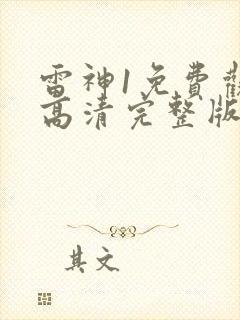 雷神1免費觀
高清完整版
其文